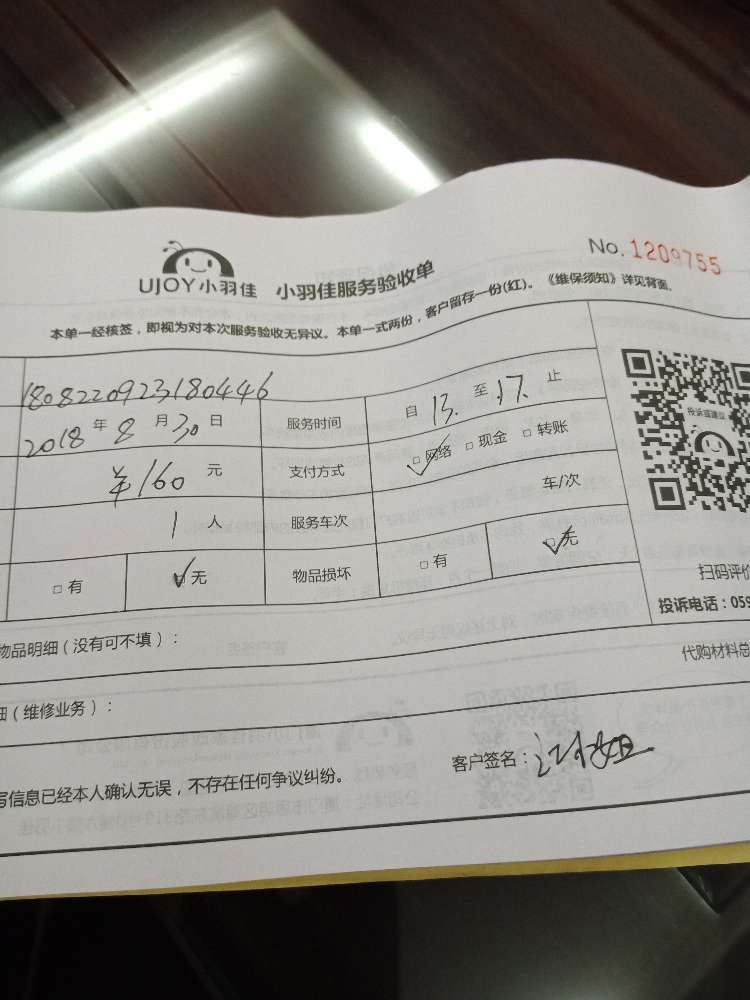 No. 1209755
UJOY小羽佳 小羽佳服务验收单
本单一经核签，即视为对本次服务验收无异议。本单一式两份，客户留存一份(红)。《维保须知》详见背面。
1808220923180446
2018年8月30日 服务时间 自13.至17.止
￥160元 支付方式 □网络 □现金 □转账
1人 服务车次 车/次
□有 □无 物品损坏 □有 □无
投诉或建议
扫码评价
投诉电话：059
物品明细（没有可不填）：
代购材料总
细（维修业务）：
写信息已经本人确认无误，不存在任何争议纠纷。
客户签名：江小姐